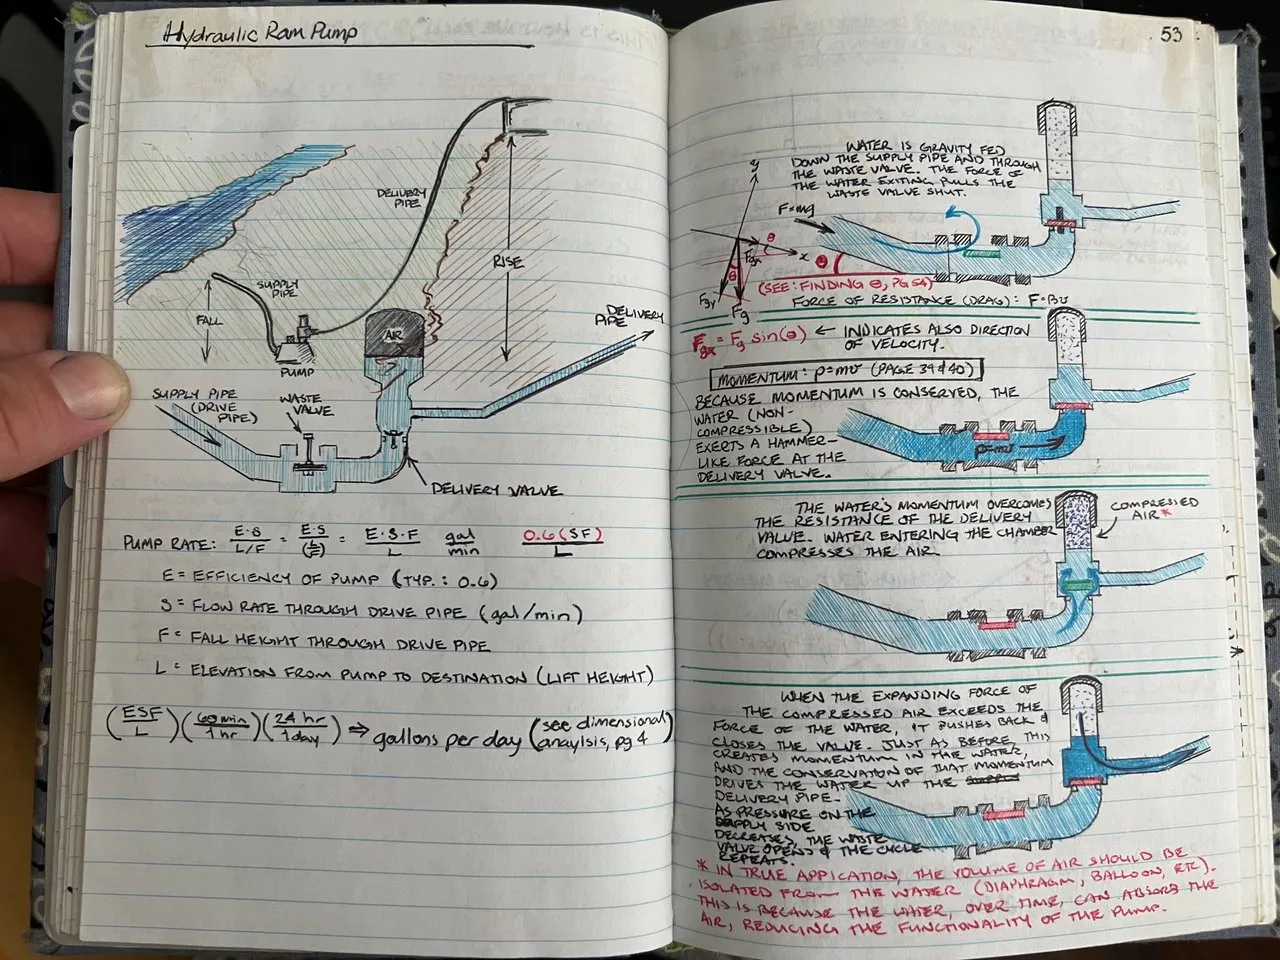 Hydraulic Ram Pump
DELIVERY
PIPE
RISE
SUPPLY
PIPE
FALL
PUMP
AIR
DELIVERY
PIPE
SUPPLY PIPE
(DRIVE
PIPE)
WASTE
VALVE
DELIVERY VALVE
PUMP RATE: E·S / L/F = E·S / (L/F) = E·S·F / L gal/min 0.6(SF) / L
E = EFFICIENCY OF PUMP (TYP.: 0.6)
S = FLOW RATE THROUGH DRIVE PIPE (gal/min)
F = FALL HEIGHT THROUGH DRIVE PIPE
L = ELEVATION FROM PUMP TO DESTINATION (LIFT HEIGHT)
(ESF / L)(60 min / 1 hr)(24 hr / 1 day) ⇒ gallons per day (see dimensional
anaylsis, pg 4)
53
WATER IS GRAVITY FED
DOWN THE SUPPLY PIPE AND THROUGH
THE WASTE VALVE. THE FORCE OF
THE WATER EXITING PULLS THE
WASTE VALVE SHUT.
y
F=mg
θ
x
Fgx
θ
θ
Fgy
Fg
(SEE: FINDING θ, PG 54)
FORCE OF RESISTANCE (DRAG): F=Bv
Fgx = Fg sin(θ) ← INDICATES ALSO DIRECTION
OF VELOCITY.
MOMENTUM: p=mv (PAGE 39 & 40)
BECAUSE MOMENTUM IS CONSERVED, THE
WATER (NON-
COMPRESSIBLE)
EXERTS A HAMMER-
LIKE FORCE AT THE
DELIVERY VALVE.
p=mv
THE WATER'S MOMENTUM OVERCOMES
THE RESISTANCE OF THE DELIVERY
VALVE. WATER ENTERING THE CHAMBER
COMPRESSES THE AIR.
COMPRESSED
AIR*
WHEN THE EXPANDING FORCE OF
THE COMPRESSED AIR EXCEEDS THE
FORCE OF THE WATER, IT PUSHES BACK &
CLOSES THE VALVE. JUST AS BEFORE, THIS
CREATES MOMENTUM IN THE WATER,
AND THE CONSERVATION OF THAT MOMENTUM
DRIVES THE WATER UP THE
DELIVERY PIPE.
AS PRESSURE ON THE
SUPPLY SIDE
DECREASES, THE WASTE
VALVE OPENS & THE CYCLE
REPEATS.
* IN TRUE APPLICATION, THE VOLUME OF AIR SHOULD BE
ISOLATED FROM THE WATER (DIAPHRAGM, BALLOON, ETC).
THIS IS BECAUSE THE WATER, OVER TIME, CAN ABSORB THE
AIR, REDUCING THE FUNCTIONALITY OF THE PUMP.